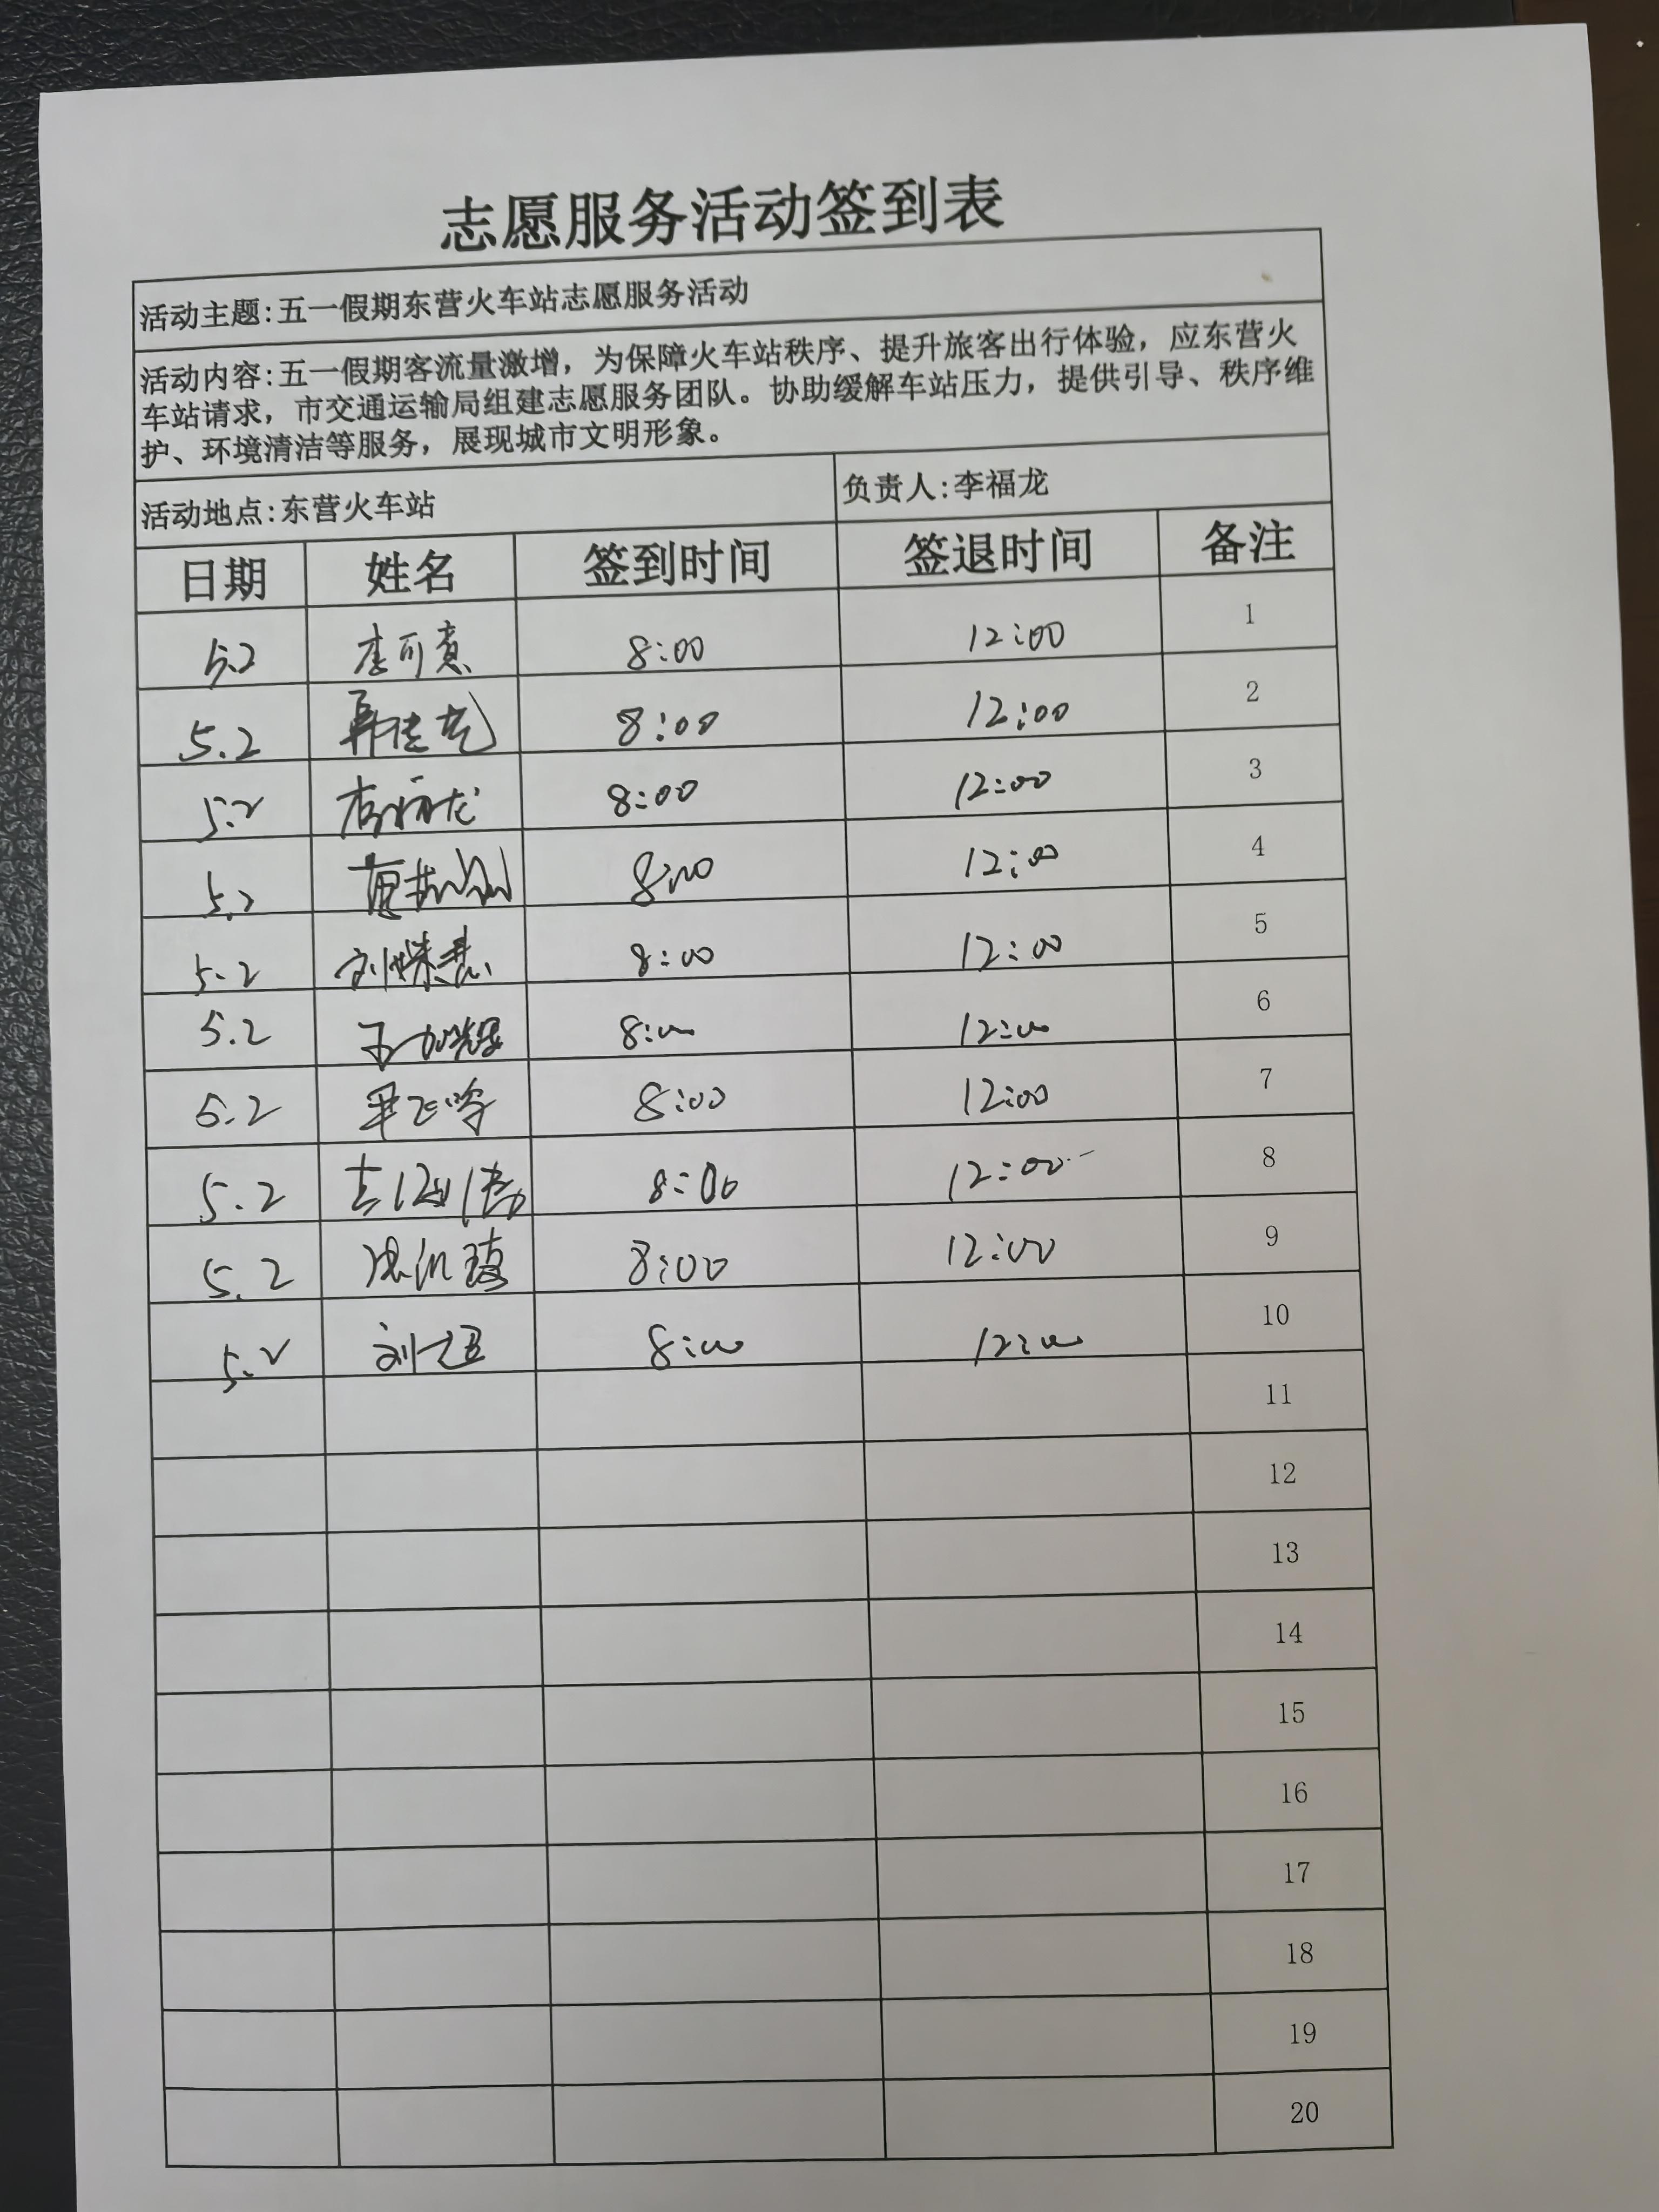 志愿服务活动签到表
活动主题:五一假期东营火车站志愿服务活动
活动内容:五一假期客流量激增，为保障火车站秩序、提升旅客出行体验，应东营火
车站请求，市交通运输局组建志愿服务团队。协助缓解车站压力，提供引导、秩序维
护、环境清洁等服务，展现城市文明形象。
活动地点:东营火车站 负责人:李福龙
日期 姓名 签到时间 签退时间 备注
5.2 李可意 8:00 12:00 1
5.2 8:00 12:00 2
5.2 李福龙 8:00 12:00 3
5.2 8:00 12:00 4
5.2 8:00 12:00 5
5.2 8:00 12:00 6
5.2 8:00 12:00 7
5.2 8:00 12:00 8
5.2 8:00 12:00 9
5.2 刘超 8:00 12:00 10
11
12
13
14
15
16
17
18
19
20